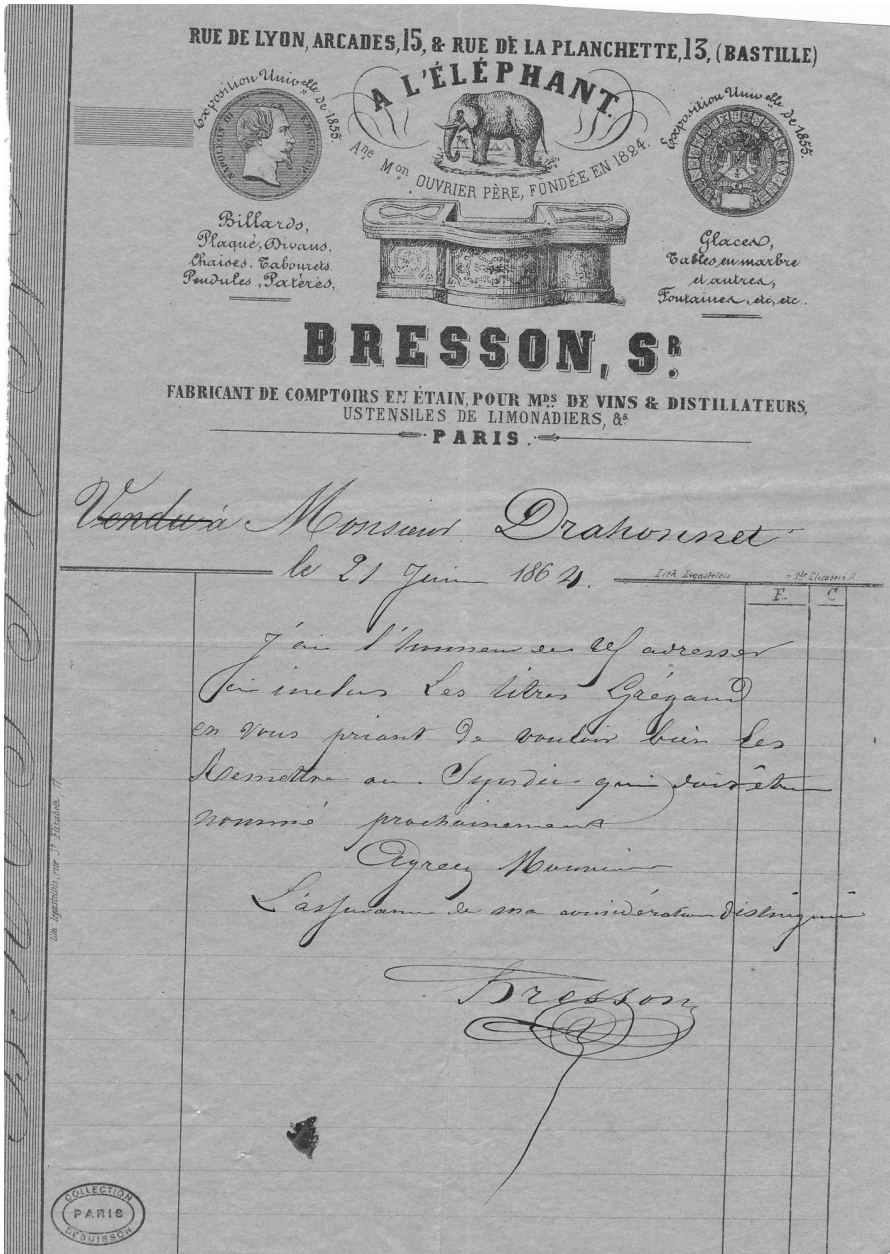 RUE DE LYON, ARCADES, 15, & RUE DE LA PLANCHETTE, 13, (BASTILLE)
Exposition Univelle de 1855.
A L'ÉLÉPHANT.
Exposition Univelle de 1855.
NAPOLEON III EMPEREUR
Ane Mon OUVRIER PÈRE, FONDÉE EN 1824.
Billards,
Plaqué, Divans.
Chaises, Tabourets.
Pendules, Patères,
Glaces,
Tables en marbre
et autres,
Fontaines, etc, etc.
BRESSON, SR.
FABRICANT DE COMPTOIRS EN ÉTAIN, POUR MDS DE VINS & DISTILLATEURS,
USTENSILES DE LIMONADIERS, &a
PARIS.
Vendu à Monsieur Drahonnet
le 21 Juin 1864.
Lith. r. Ste Elisabeth, 11
F. C
J'ai l'honneur de adresser
ci inclus Les titres Grégaud
en vous priant de vouloir bien Les
Remettre au Syndic qui doit être
nommé prochainement
Agréez Monsieur
L'assurance de ma considération distinguée
Bresson
COLLECTION
PARIS
DEBUISSON